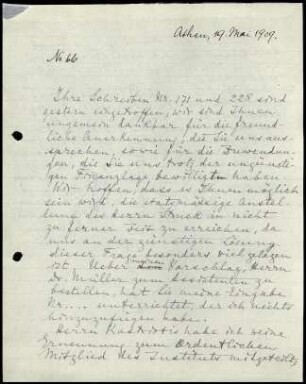 Athen, 19. Mai 1909.
No 66
Ihre Schreiben Nr. 171 und 228 sind
gestern eingetroffen, wir sind Ihnen
ungemein dankbar für die freund-
liche Anerkennung, die Sie uns aus-
sprechen, sowie für die Zuwendun-
gen, die Sie uns trotz der ungünsti-
gen Finanzlage bewilligt haben.
Wir hoffen, dass es Ihnen möglich
sein wird, die etatmässige Anstel-
lung des Herrn Struck in nicht
zu ferner Zeit zu erreichen, da
uns an der günstigen Lösung
dieser Frage besonders viel gelegen
ist. Ueber Vorschlag, Herrn
Dr. Müller zum Assistenten zu
bestellen, hat Sie meine Eingabe
Nr... unterrichtet, der ich nichts
hinzuzufügen habe.
Herrn Kastriotis habe ich seine
Ernennung zum ordentlichen
Mitglied des Instituts mitgeteilt,